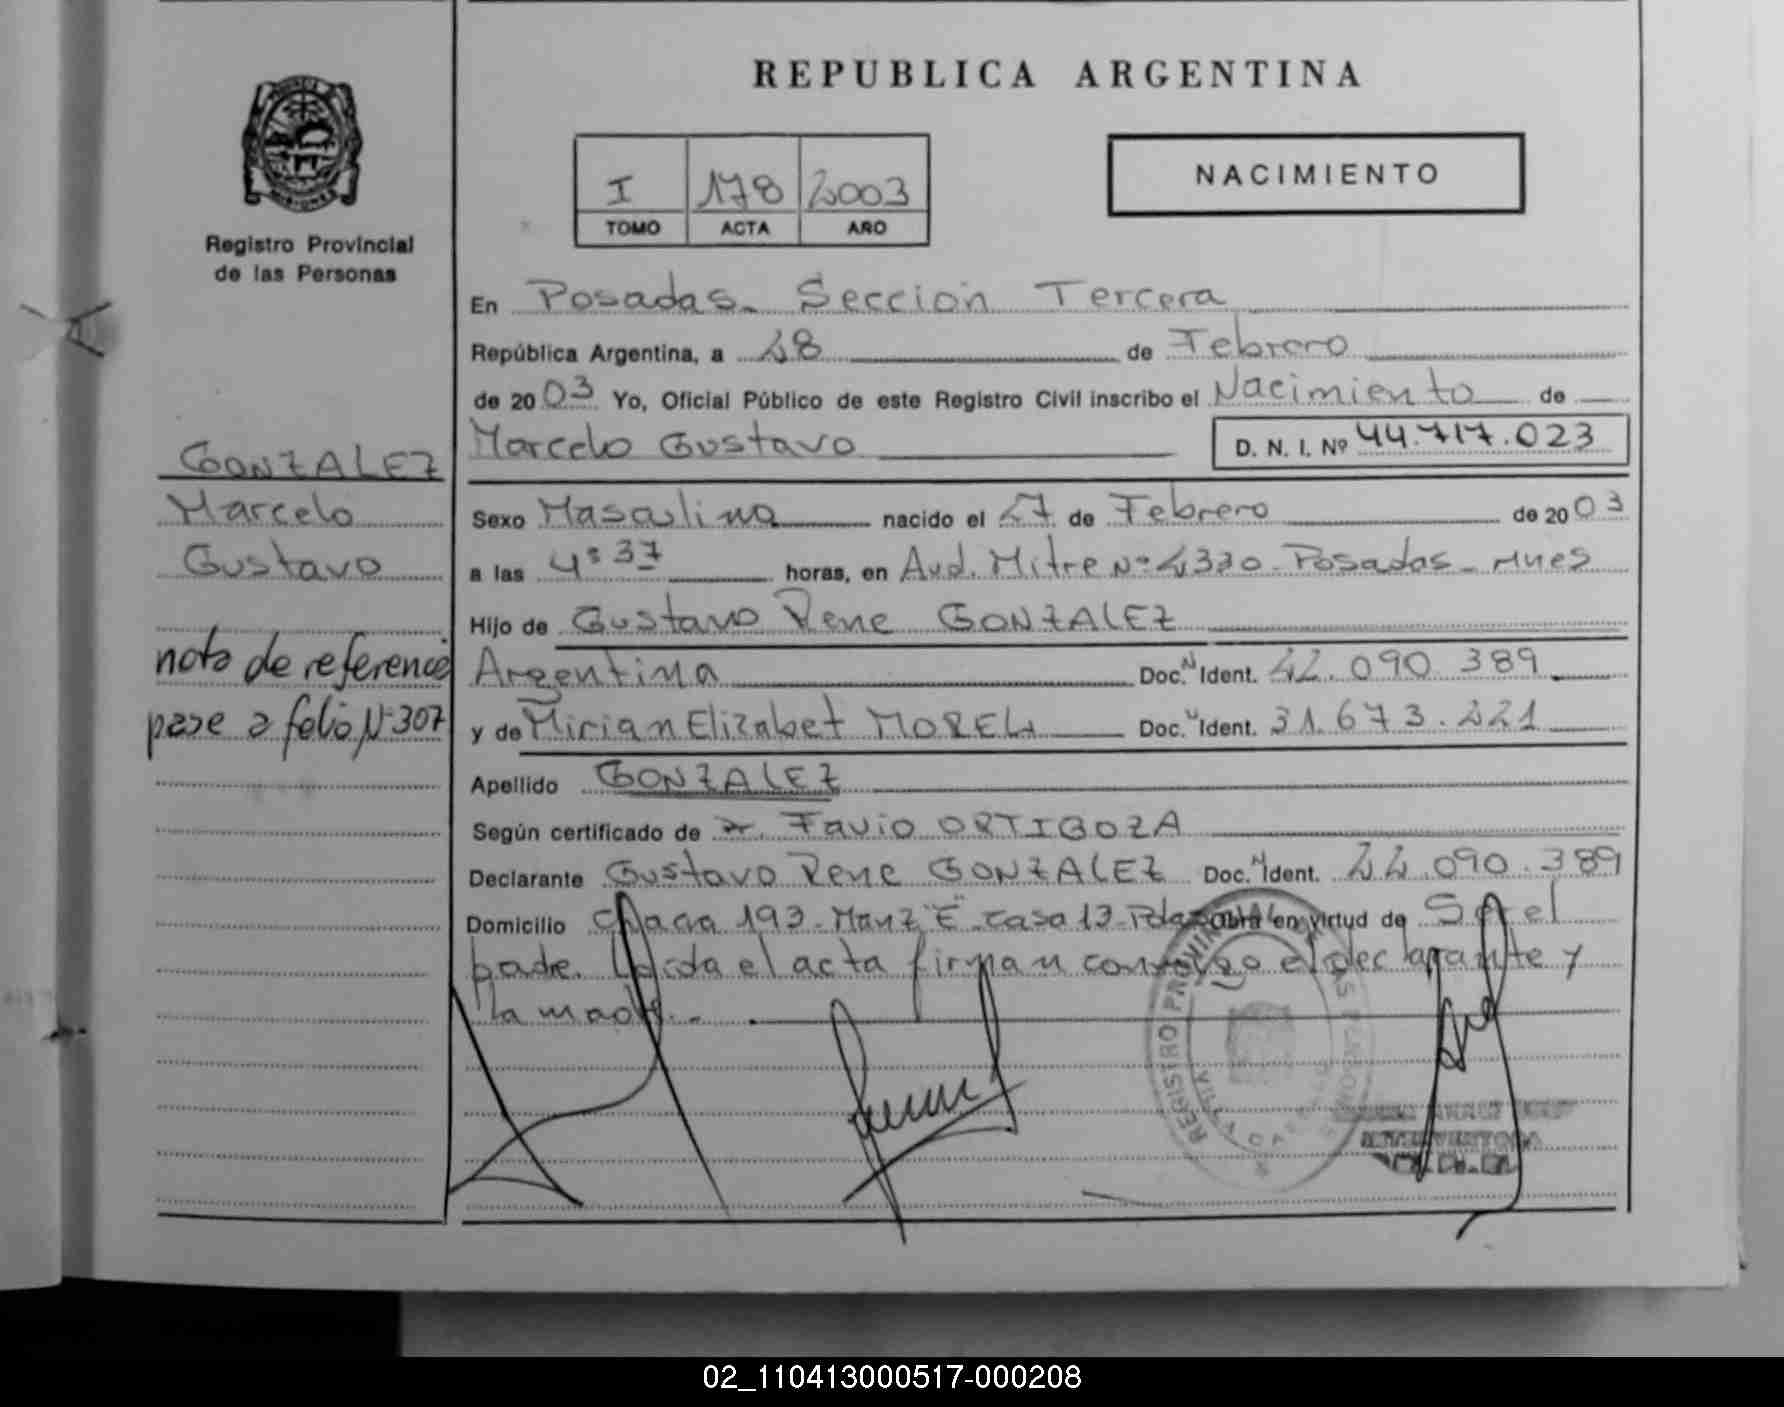 REPUBLICA ARGENTINA
I 178 2003
TOMO ACTA AÑO
NACIMIENTO
Registro Provincial
de las Personas
En Posadas - Sección Tercera
República Argentina, a 28 de Febrero
de 2003 Yo, Oficial Público de este Registro Civil inscribo el Nacimiento de
Marcelo Gustavo D. N. I. Nº 44.717.023
GONZALEZ
Marcelo
Gustavo
nota de referencia
pase a folio Nº 307
Sexo Masculino nacido el 27 de Febrero de 2003
a las 4:37 horas, en Avd. Mitre Nº 2330 - Posadas - Mnes
Hijo de Gustavo Rene GONZALEZ
Argentina Doc. N Ident. 22.090.389
y de Mirian Elizabet MOREL Doc. N Ident. 31.673.221
Apellido GONZALEZ
Según certificado de Dr. Favio ORTIGOZA
Declarante Gustavo Rene GONZALEZ Doc. N Ident. 22.090.389
Domicilio Chacra 193 - Manz "E" - casa 13 - Pdas Obra en virtud de Ser el
padre. Leida el acta firman conmigo el declarante y
la madre.-
REGISTRO PROVINCIAL DE LAS PERSONAS
02_110413000517-000208